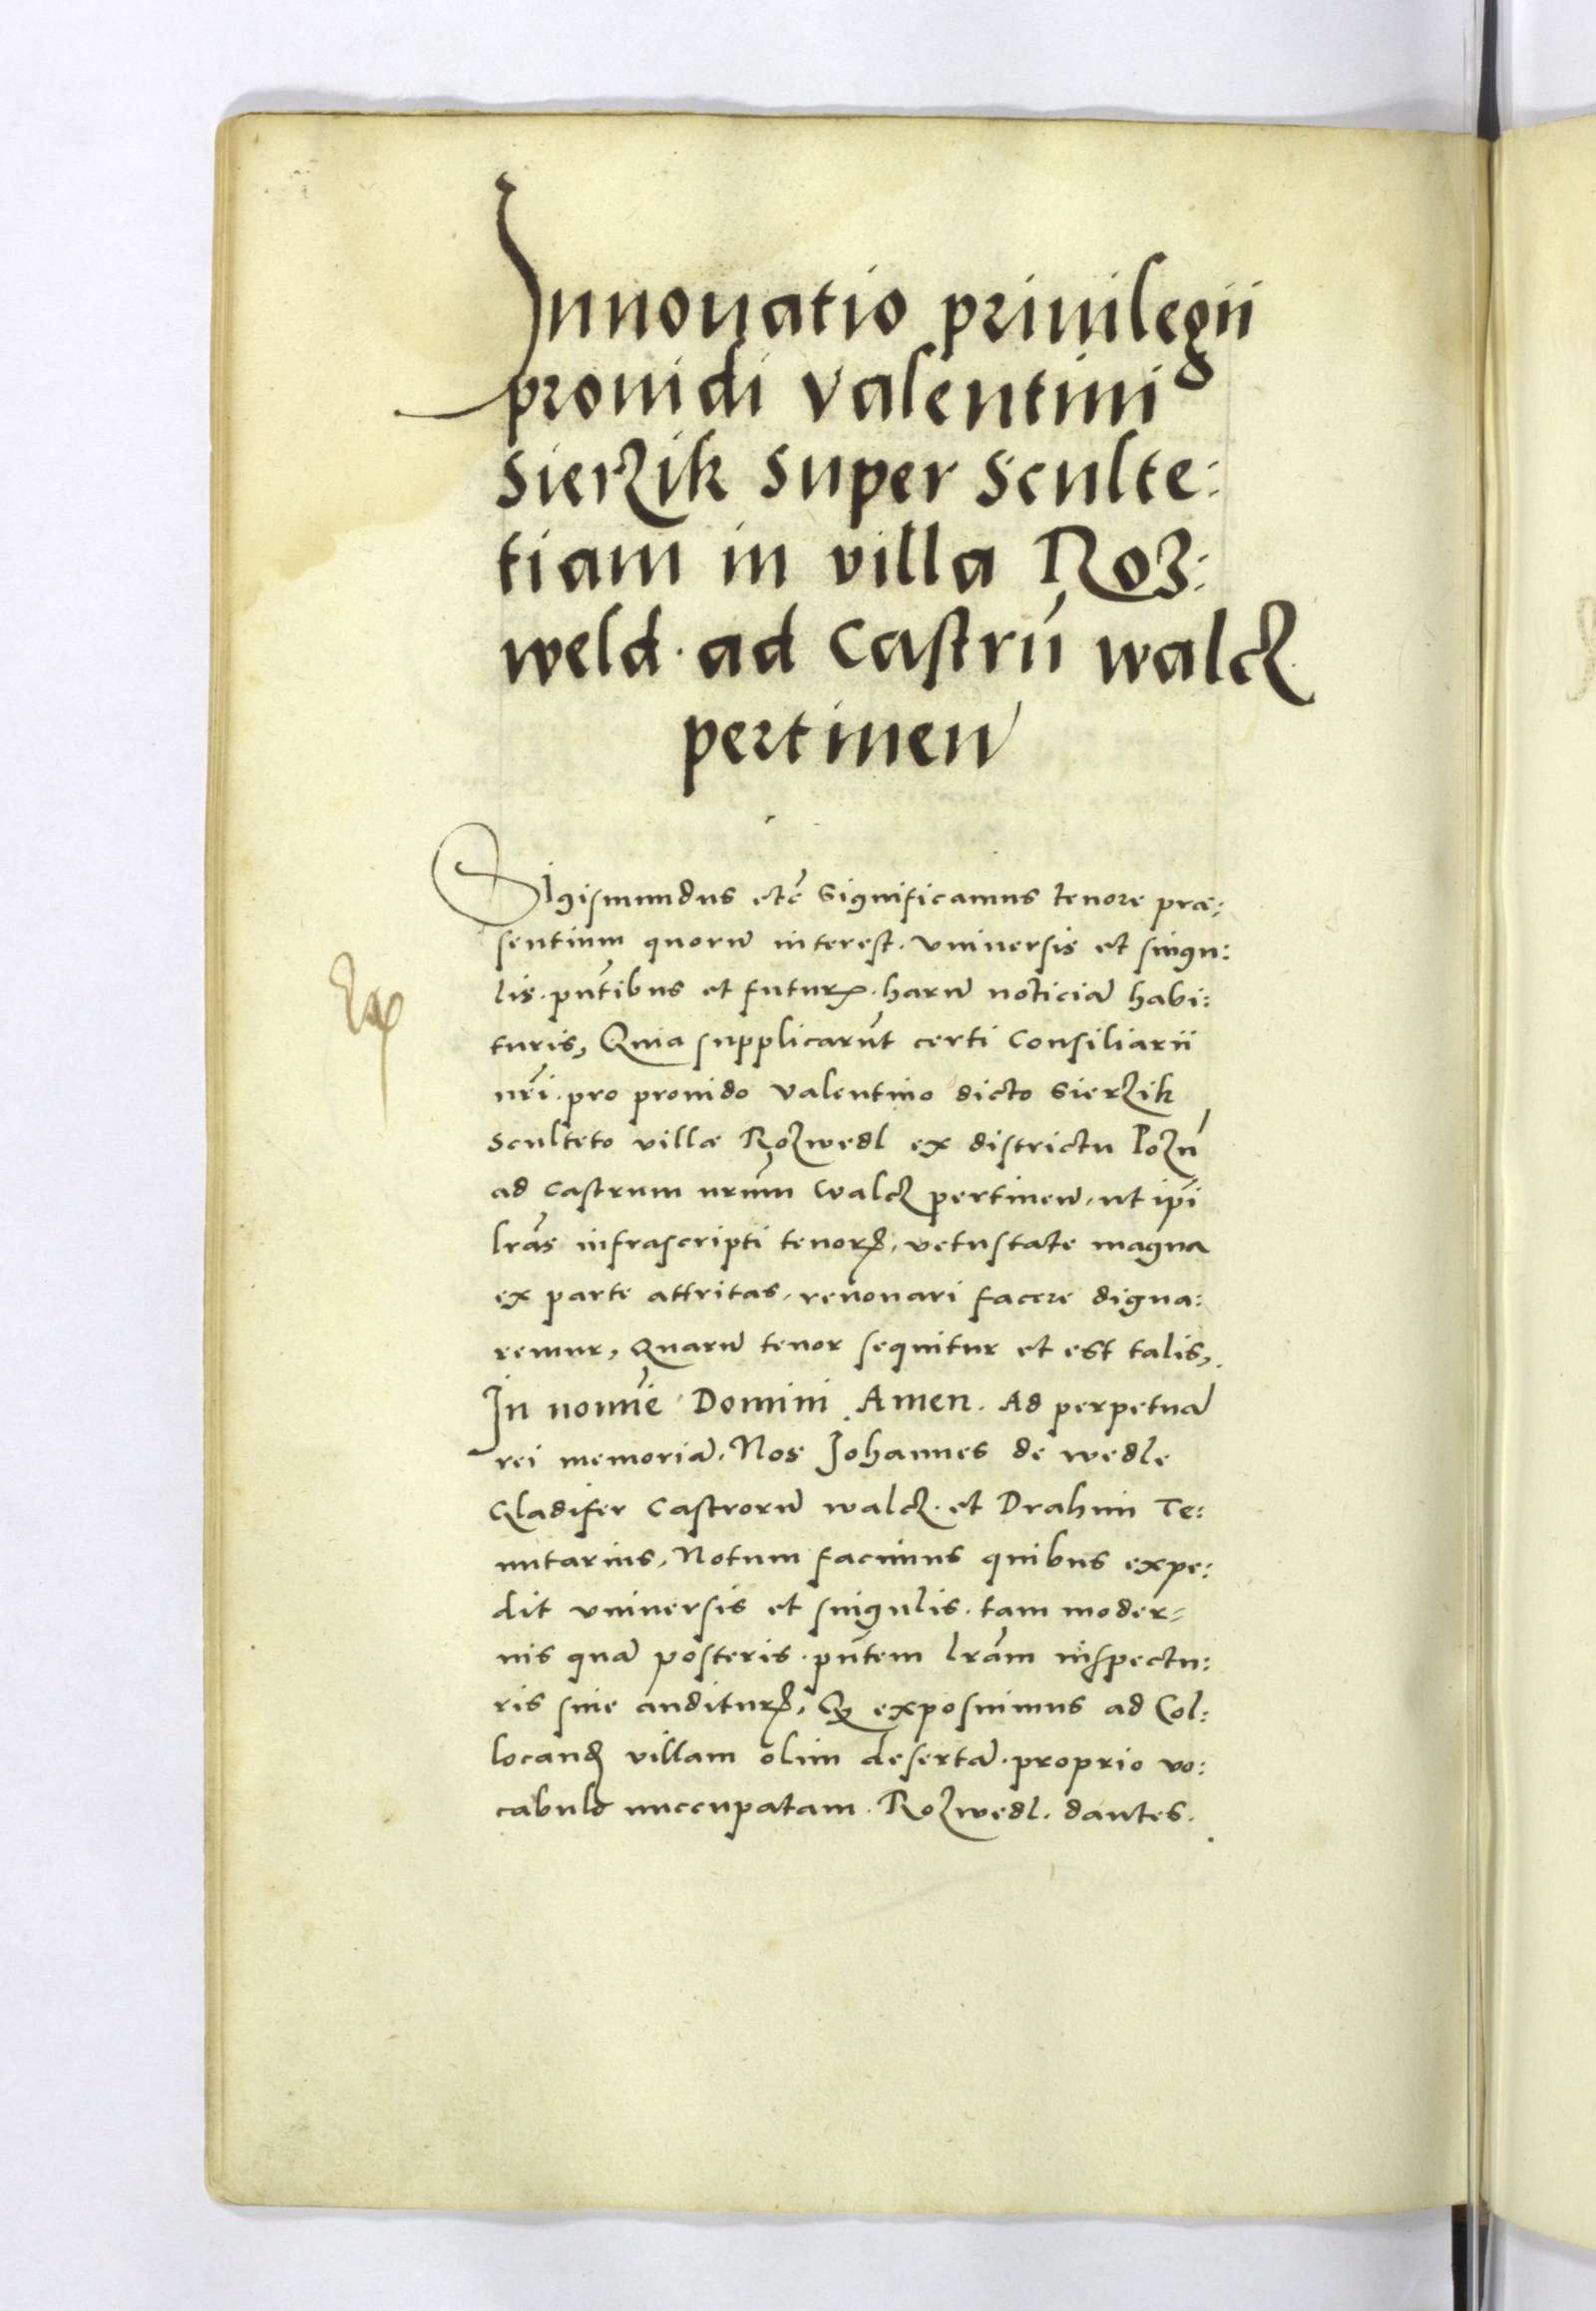 Innouatio priuilegii
prouidi Valentini
Sierzik super Sculte:
tiam in villa Roz:
weld. ad Castrū walcz
pertinen
Sigismundus etc̄ Significamus tenore præ:
sentium quorū interest. vniuersis et singu:
lis. pn̄tibus et futuris. harū noticiā habi:
turis, Quia supplicarūt certi Consiliarii
nr̄i. pro prouido Valentino dicto Sierzik
Sculteto villæ Rozwedl ex districtu Pozn̄
ad Castrum nr̄um Walcz pertinen̄. ut ip̄i
lr̄as infrascripti tenoris, vetustate magna
ex parte attritas, renouari facere digna:
remur, Quarū tenor sequitur et est talis,
In nomīe Domini Amen. Ad perpetuā
rei memoriā. Nos Johannes de wedle
Gladifer Castrorū walcz. et Drahim Te:
nutarius, Notum facimus quibus expe:
dit vniuersis et singulis. tam moder=
nis quā posteris. pn̄tem lr̄am inspectu:
ris siue audituris, Qz exposuimus ad Col:
locand villam olim desertā. proprio vo:
cabulo nuccupatam. Rozwedl. dantes.